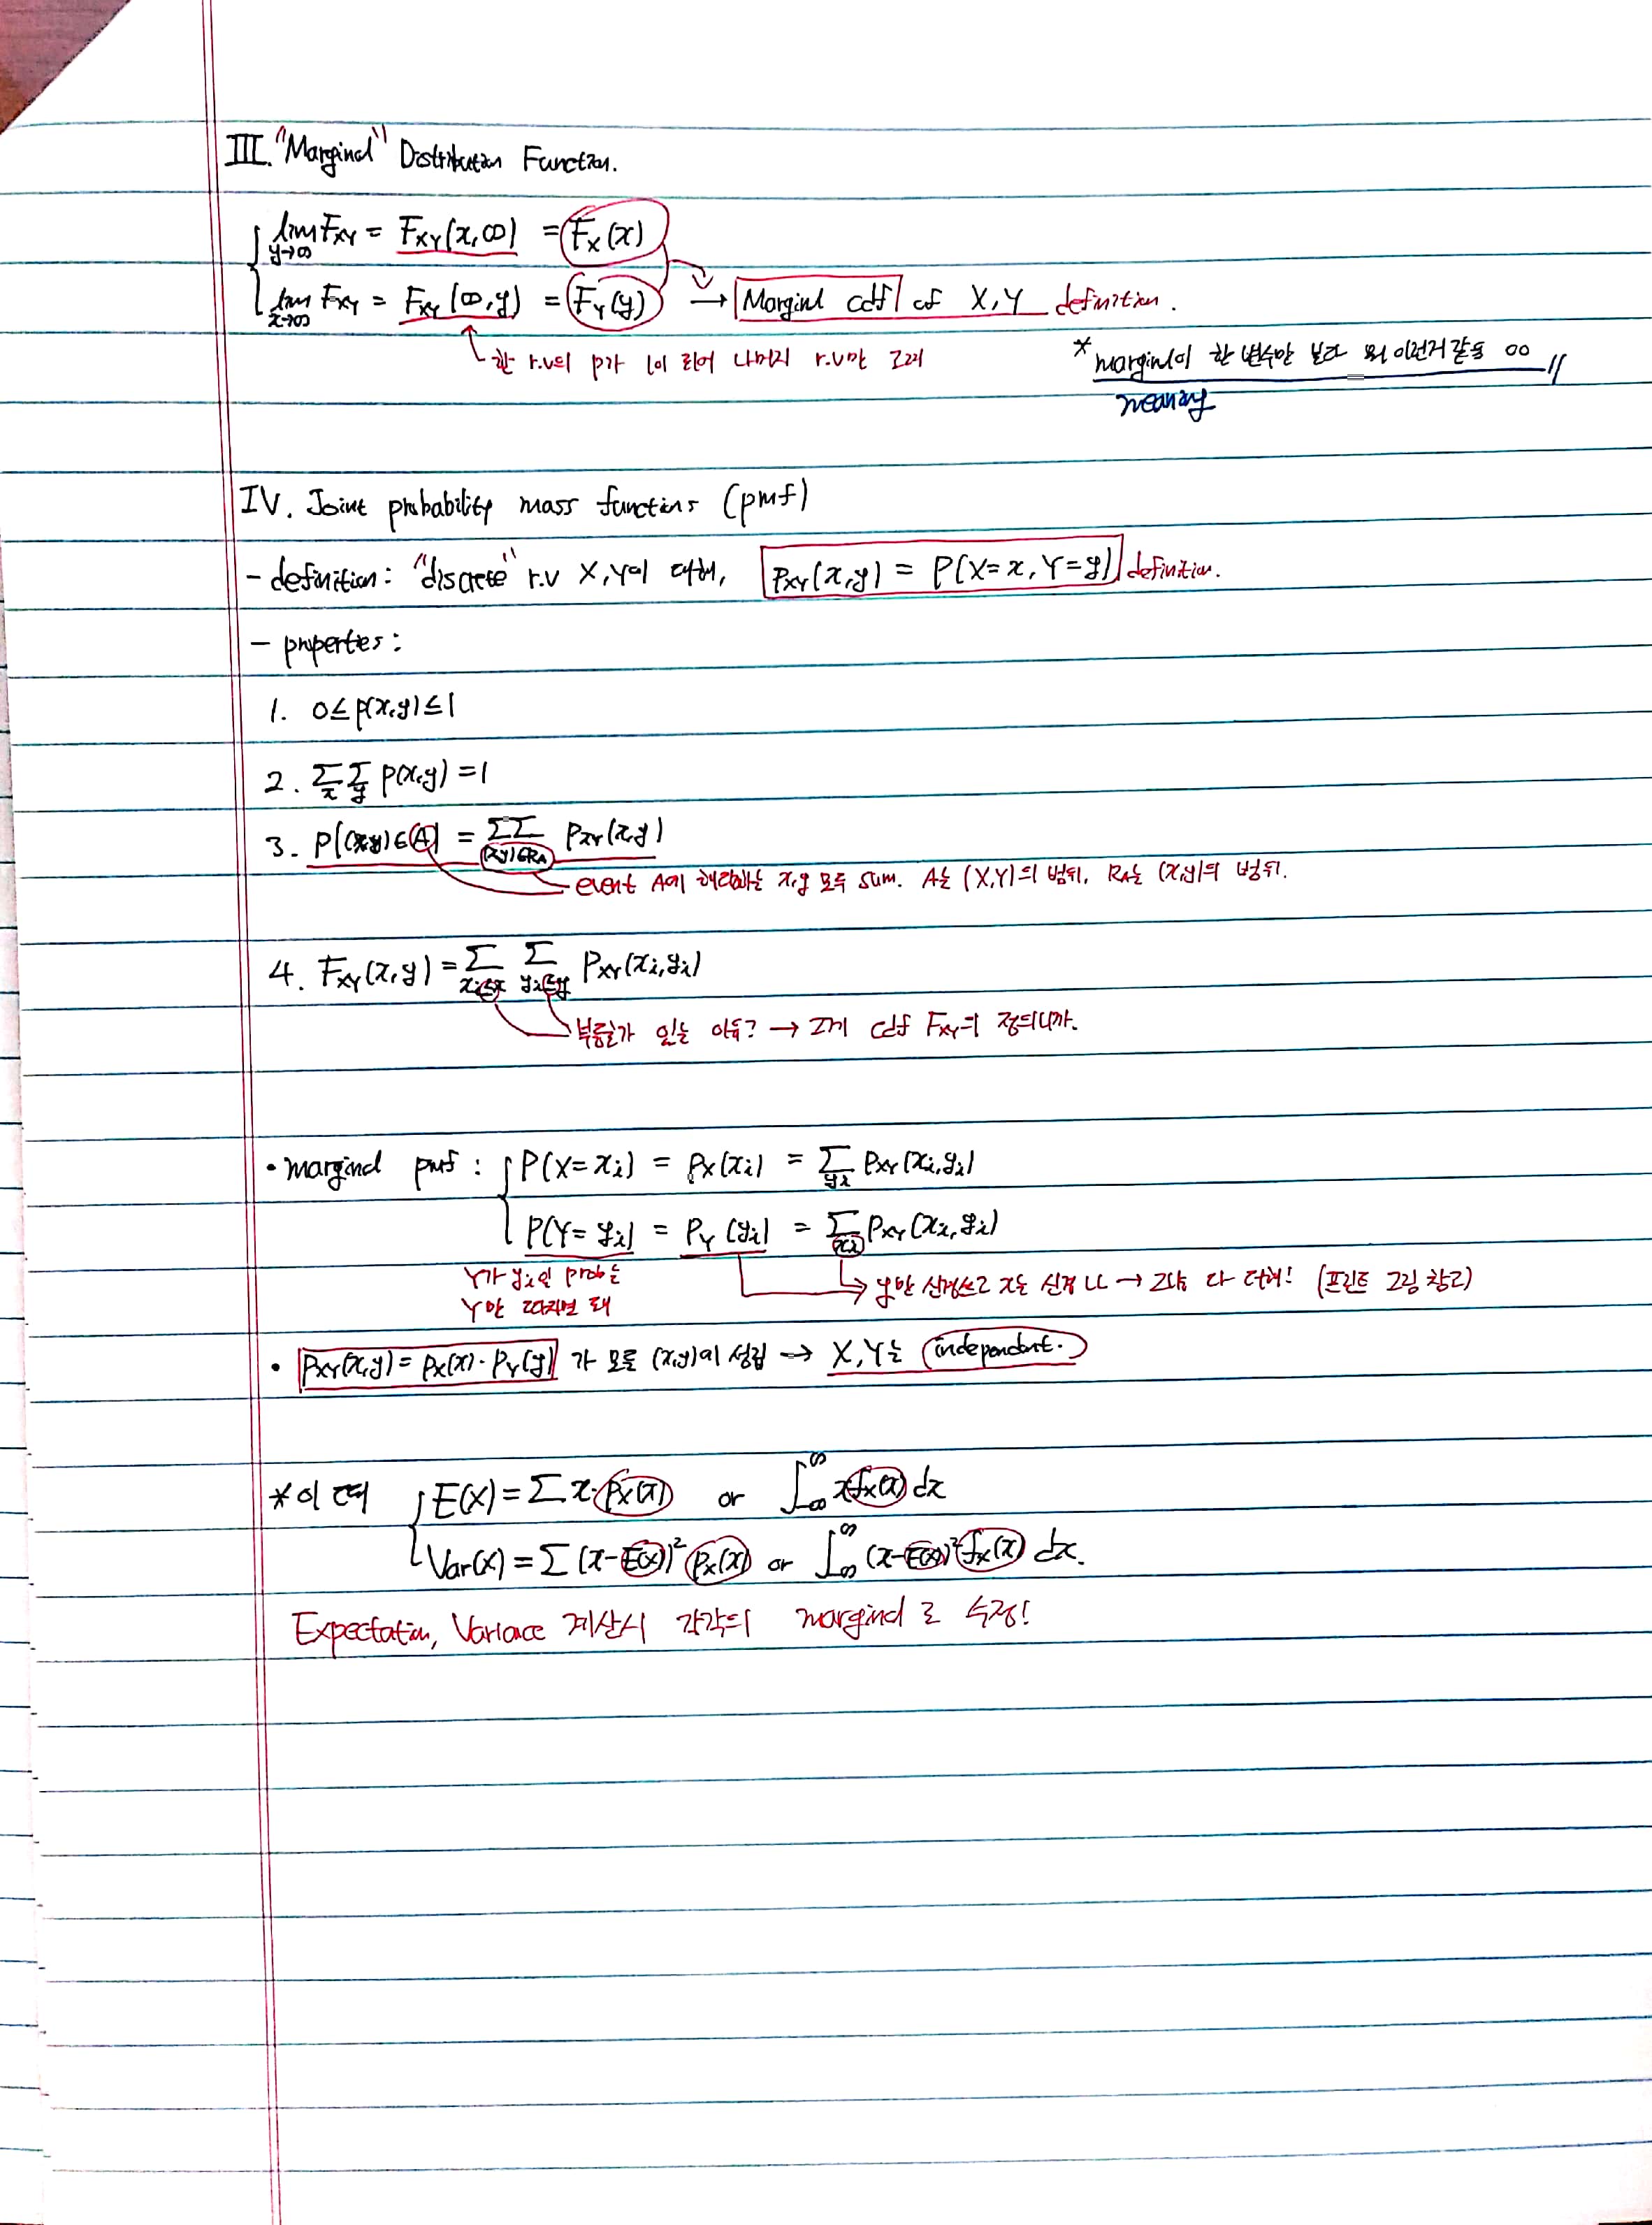 III. "Marginal" Distribution Function.
lim y→∞ F_XY = F_XY(x,∞) = F_X(x)
lim x→∞ F_XY = F_XY(∞,y) = F_Y(y) → Marginal cdf of X,Y definition.
한 r.v의 p가 1이 되어 나머지 r.v만 고려
* marginal이 한 변수만 본다 뭐 이런거 같음 ㅇㅇ //
meaning
IV. Joint probability mass functions (pmf)
- definition: "discrete" r.v X,Y에 대해, P_XY(x,y) = P(X=x, Y=y) definition.
- properties:
1. 0≤p(x,y)≤1
2. Σ_x Σ_y p(x,y) = 1
3. P((x,y)∈A) = ΣΣ_(x,y)∈R_A P_XY(x,y)
event A에 해당하는 x,y 모두 sum. A는 (X,Y)의 범위, R_A는 (x,y)의 범위.
4. F_XY(x,y) = Σ_{x_i≤x} Σ_{y_i≤y} P_XY(x_i,y_i)
부등호가 있는 이유? → 그게 cdf F_XY의 정의니까.
• marginal pmf : P(X=x_i) = P_X(x_i) = Σ_{y_i} P_XY(x_i,y_i)
P(Y=y_i) = P_Y(y_i) = Σ_{x_i} P_XY(x_i,y_i)
Y가 y_i인 prob는
Y만 따지면 돼
y만 신경쓰고 x는 신경 ㄴㄴ → 그냥 다 더해! (프린트 그림 참고)
• P_XY(x,y) = P_X(x)·P_Y(y) 가 모든 (x,y)에 성립 → X,Y는 independent.
* 이 때 E(X) = Σ x·P_X(x) or ∫_{-∞}^{∞} x f_X(x) dx
Var(X) = Σ (x-E(X))² P_X(x) or ∫_{-∞}^{∞} (x-E(X))² f_X(x) dx.
Expectation, Variance 계산시 각각의 marginal로 수정!